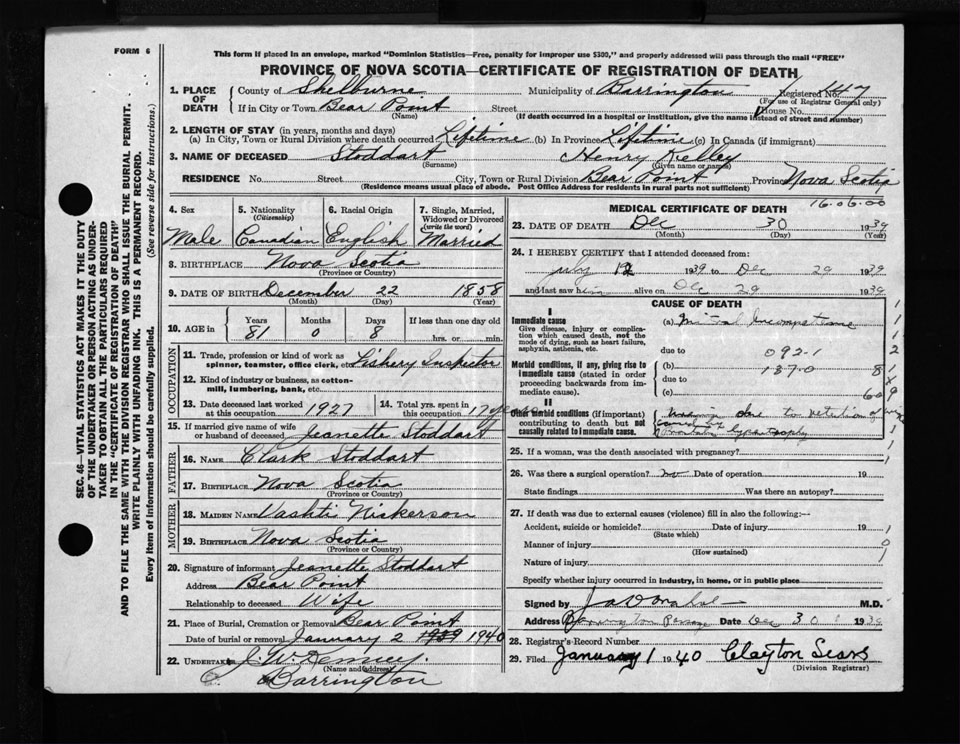 FORM 6
This form if placed in an envelope, marked "Dominion Statistics—Free, penalty for improper use $300," and properly addressed will pass through the mail "FREE"
PROVINCE OF NOVA SCOTIA—CERTIFICATE OF REGISTRATION OF DEATH
1. PLACE OF DEATH
County of Shelburne Municipality of Barrington Registered No. 47
(For use of Registrar General only)
If in City or Town Bear Point Street House No.
(Name) (If death occurred in a hospital or institution, give the name instead of street and number)
2. LENGTH OF STAY (in years, months and days)
(a) In City, Town or Rural Division where death occurred Lifetime (b) In Province Lifetime (c) In Canada (if immigrant)
3. NAME OF DECEASED Stoddart Henry Kelley
(Surname) (Given name or names)
RESIDENCE No. Street City, Town or Rural Division Bear Point Province Nova Scotia
(Residence means usual place of abode. Post Office Address for residents in rural parts not sufficient)
16.06.00
4. Sex Male
5. Nationality (Citizenship) Canadian
6. Racial Origin English
7. Single, Married, Widowed or Divorced (write the word) Married
8. BIRTHPLACE Nova Scotia
(Province or Country)
9. DATE OF BIRTH December 22 1858
(Month) (Day) (Year)
10. AGE in Years Months Days If less than one day old
81 0 8 hrs. or min.
OCCUPATION
11. Trade, profession or kind of work as spinner, teamster, office clerk, etc. Fishery Inspector
12. Kind of industry or business, as cotton-mill, lumbering, bank, etc.
13. Date deceased last worked at this occupation 1927
14. Total yrs. spent in this occupation 17 years
15. If married give name of wife or husband of deceased Jeanette Stoddart
FATHER
16. NAME Clark Stoddart
17. BIRTHPLACE Nova Scotia
(Province or Country)
MOTHER
18. MAIDEN NAME Vashti Nickerson
19. BIRTHPLACE Nova Scotia
(Province or Country)
20. Signature of informant Jeanette Stoddart
Address Bear Point
Relationship to deceased Wife
21. Place of Burial, Cremation or Removal Bear Point
Date of burial or removal January 2 1939 1940
22. UNDERTAKER
(Name and address)
Barrington
MEDICAL CERTIFICATE OF DEATH
23. DATE OF DEATH Dec 30 1939
(Month) (Day) (Year)
24. I HEREBY CERTIFY that I attended deceased from:
July 12 1939 to Dec 29 1939
and last saw him alive on Dec 29 1939
CAUSE OF DEATH
I
Immediate cause
Give disease, injury or complication which caused death, not the mode of dying, such as heart failure, asphyxia, asthenia, etc.
(a) Mitral Incompetence
due to 092-1
Morbid conditions, if any, giving rise to immediate cause (stated in order proceeding backwards from immediate cause).
(b) 137.0
due to
(c)
II
Other morbid conditions (if important) contributing to death but not causally related to immediate cause.
due to retention of urine
caused by
Prostatic hypertrophy
25. If a woman, was the death associated with pregnancy?
26. Was there a surgical operation? no Date of operation 19
State findings Was there an autopsy?
27. If death was due to external causes (violence) fill in also the following:—
Accident, suicide or homicide? Date of injury 19
(State which)
Manner of injury
(How sustained)
Nature of injury
Specify whether injury occurred in industry, in home, or in public place
Signed by M.D.
Address Barrington Passage Date Dec 30 1939
28. Registrar's Record Number
29. Filed January 1 1940 Clayton Sears
(Division Registrar)
SEC. 46—VITAL STATISTICS ACT MAKES IT THE DUTY
OF THE UNDERTAKER OR PERSON ACTING AS UNDER-
TAKER TO OBTAIN ALL THE PARTICULARS REQUIRED
IN THE "CERTIFICATE OF REGISTRATION OF DEATH"
AND TO FILE THE SAME WITH THE DIVISION REGISTRAR WHO SHALL ISSUE THE BURIAL PERMIT.
WRITE PLAINLY WITH UNFADING INK. THIS IS A PERMANENT RECORD.
Every item of Information should be carefully supplied. (See reverse side for instructions.)